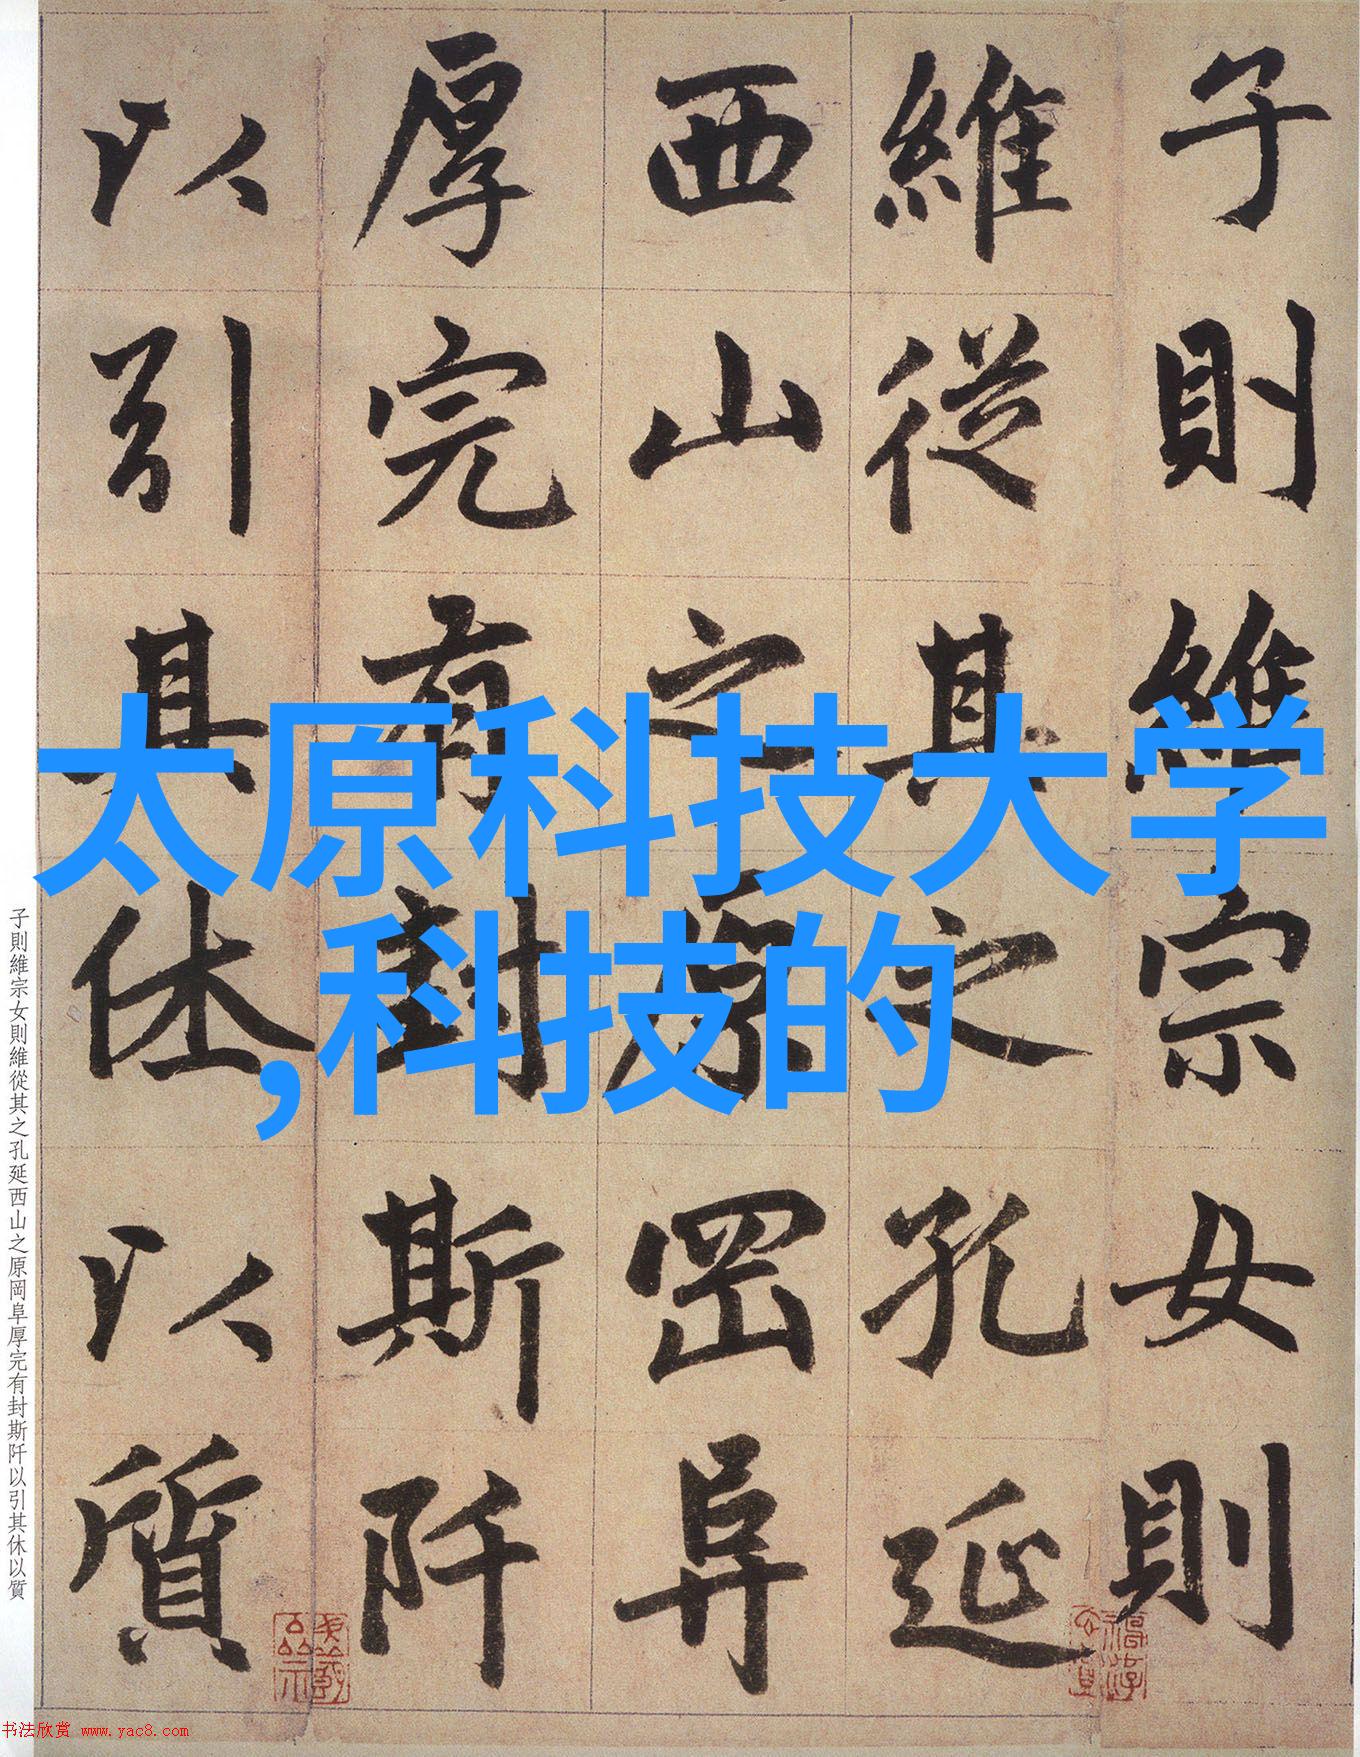 子則維宗女則
維從其之孔延
西山之原罡阜
厚完有封斯阡
以引其休以質
太原科技大学
,科技的
子則維宗女則維從其之孔延西山之原岡阜厚完有封斯阡以引其休以質
书法欣赏 www.yac8.com